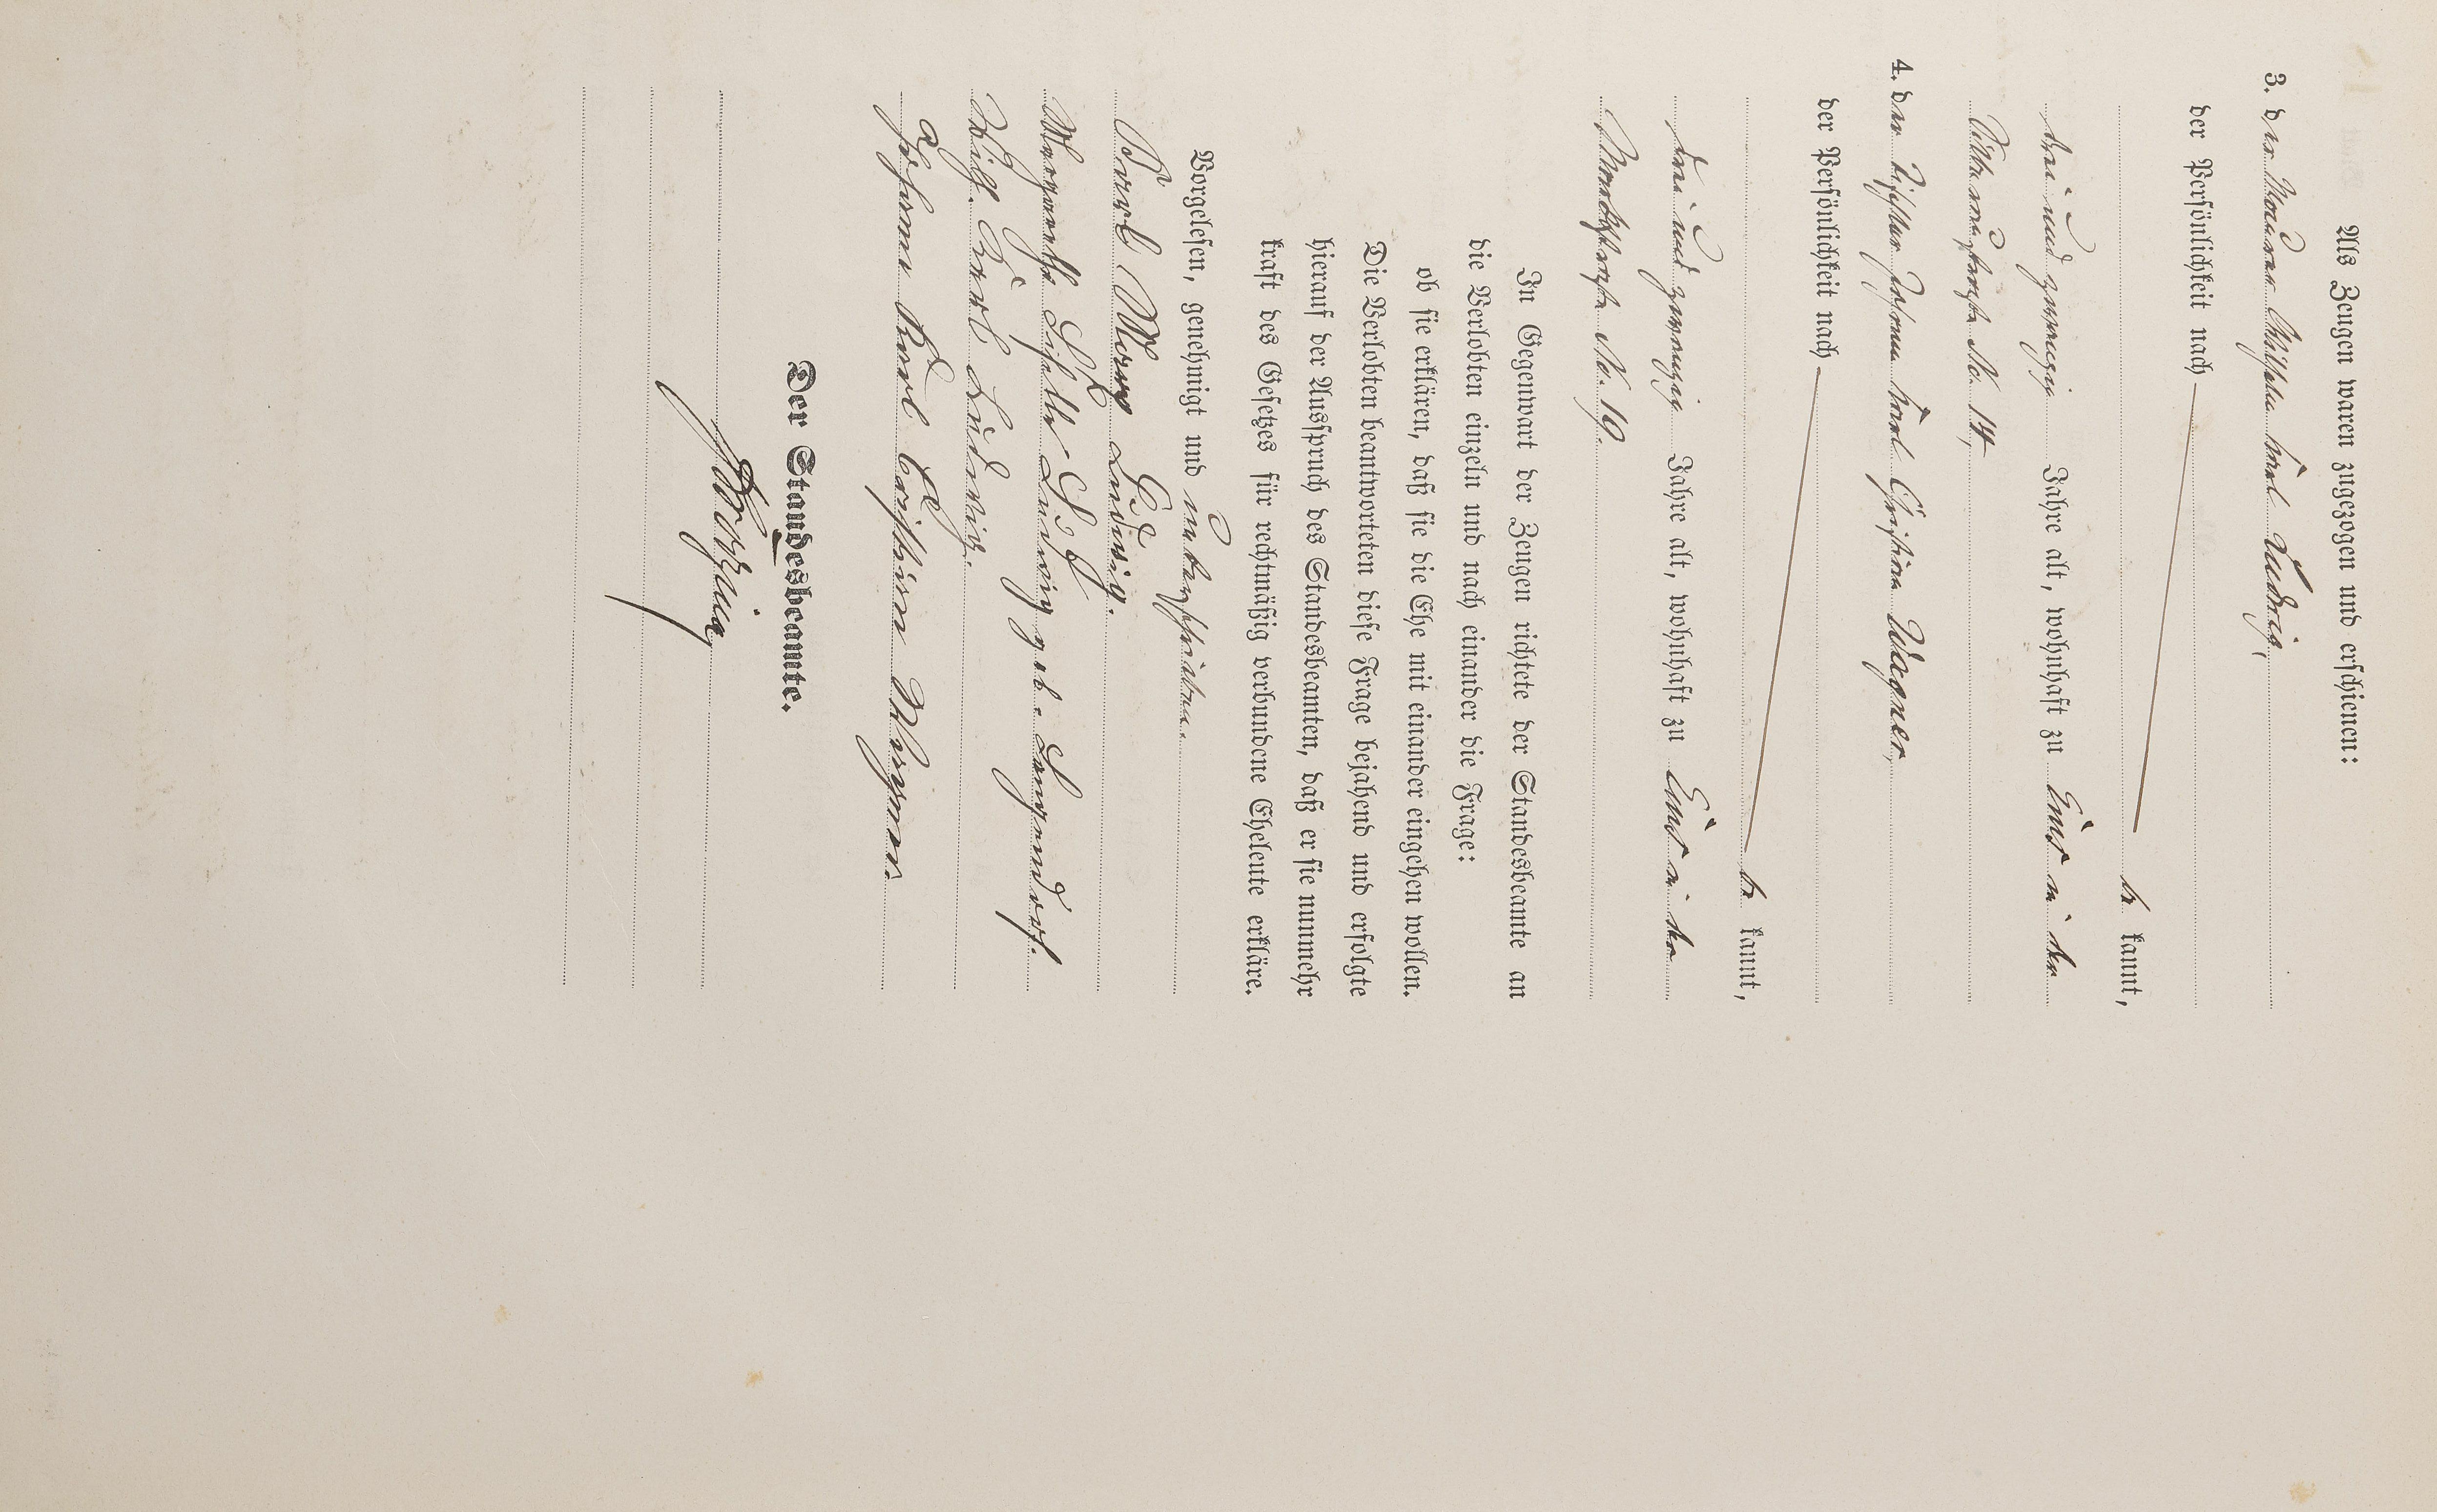 Als Zeugen waren zugezogen und erschienen:
3. der Maurer Wilhelm Karl Ludwig,
der Persönlichkeit nach
be kannt,
drei und zwanzig Jahre alt, wohnhaft zu Ems in der
No. 14,
4. der Tischler Johann Karl Christian Wagner,
der Persönlichkeit nach
be kannt,
drei und zwanzig Jahre alt, wohnhaft zu Ems in der
No. 19.
In Gegenwart der Zeugen richtete der Standesbeamte an
die Verlobten einzeln und nach einander die Frage:
ob sie erklären, daß sie die Ehe mit einander eingehen wollen.
Die Verlobten beantworteten diese Frage bejahend und erfolgte
hierauf der Ausspruch des Standesbeamten, daß er sie nunmehr
kraft des Gesetzes für rechtmäßig verbundene Eheleute erkläre.
Vorgelesen, genehmigt und unterschrieben.
Karl Ludwig.
Ludwig geb. Langendorf.
Wilh. Karl Ludwig.
Johann Karl Cristian Wagner.
Der Standesbeamte.